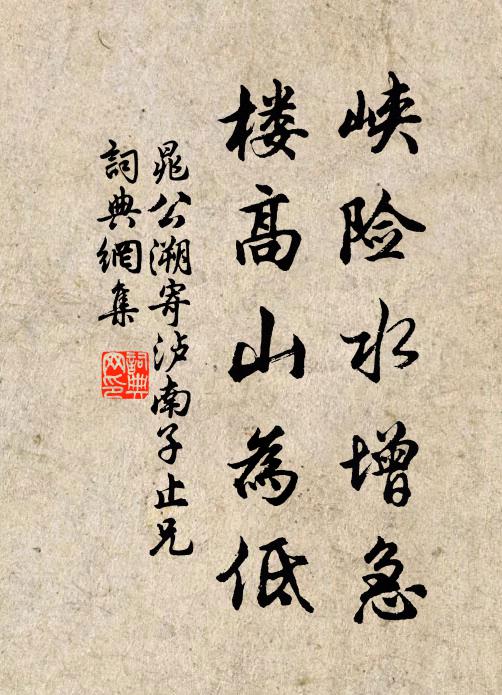 峡险水增急
楼高山为低
晁公溯寄泸南子止兄
詞典網集
詞典网印